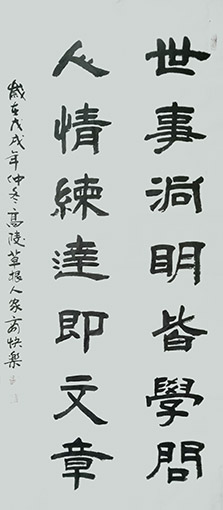 世事洞明皆學問
人情練達即文章
歲在戊戌年仲冬高陵草根人家
快樂